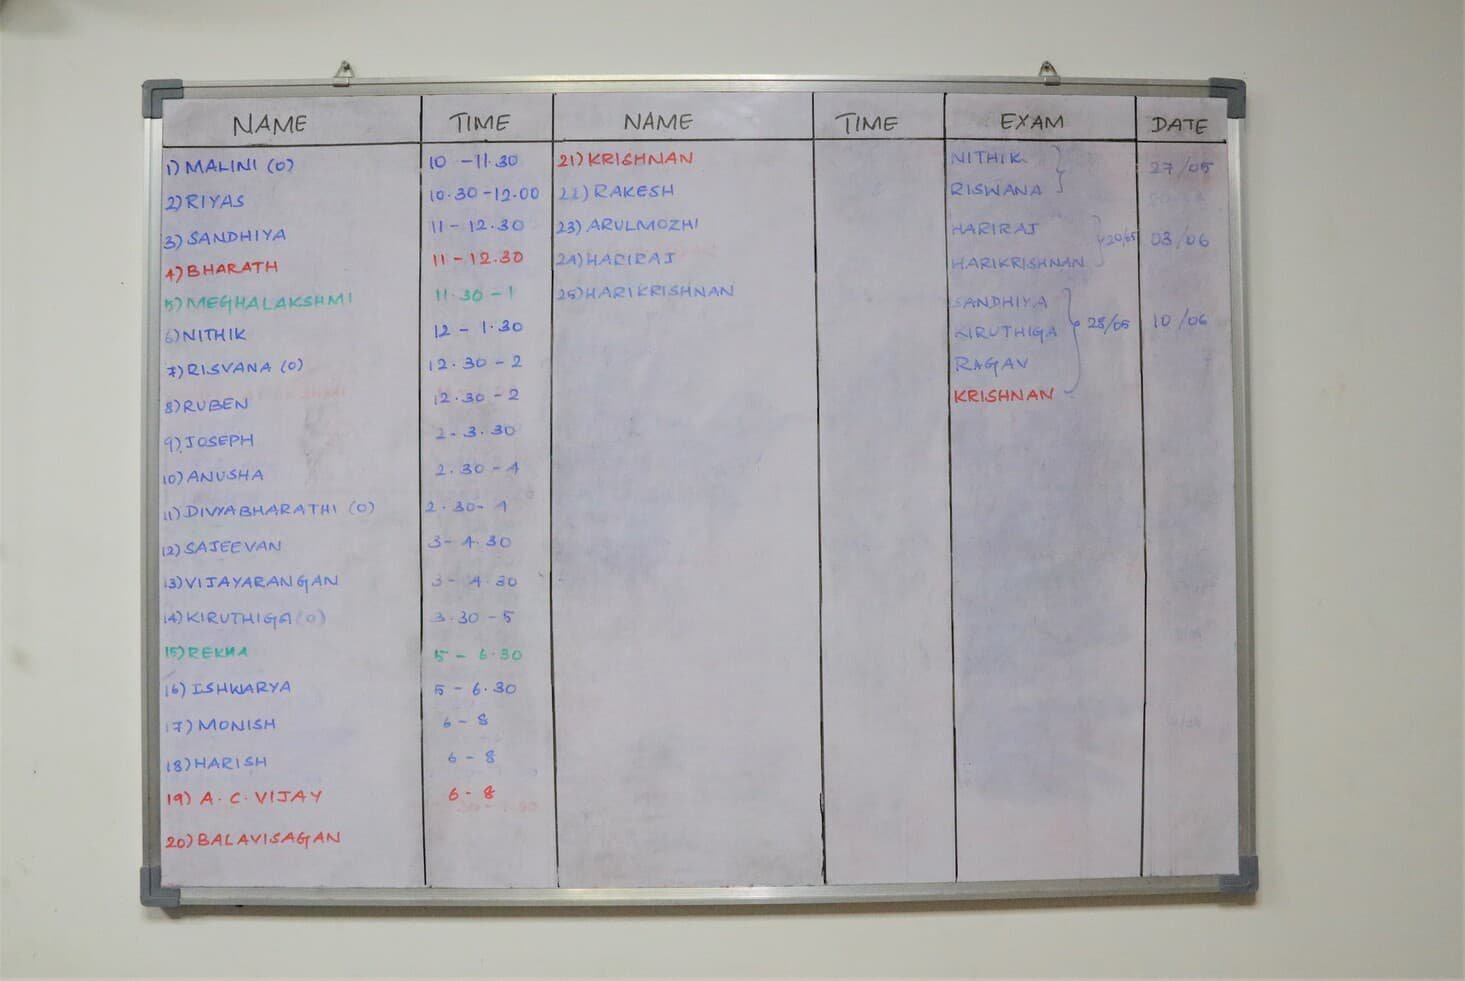 NAME TIME NAME TIME EXAM DATE
1) MALINI (O) 10 - 11.30
2) RIYAS 10.30 - 12.00
3) SANDHIYA 11 - 12.30
4) BHARATH 11 - 12.30
5) MEGHALAKSHMI 11.30 - 1
6) NITHIK 12 - 1.30
7) RISVANA (O) 12.30 - 2
8) RUBEN 12.30 - 2
9) JOSEPH 2 - 3.30
10) ANUSHA 2.30 - 4
11) DIVYABHARATHI (O) 2.30 - 4
12) SAJEEVAN 3 - 4.30
13) VIJAYARANGAN 3 - 4.30
14) KIRUTHIGA (O) 3.30 - 5
15) REKHA 5 - 6.30
16) ISHWARYA 5 - 6.30
17) MONISH 6 - 8
18) HARISH 6 - 8
19) A.C. VIJAY 6 - 8
20) BALAVISAGAN
21) KRISHNAN
22) RAKESH
23) ARULMOZHI
24) HARIRAJ
25) HARIKRISHNAN
NITHIK
RISWANA
27/05
HARIRAJ
HARIKRISHNAN
20/05 03/06
SANDHIYA
KIRUTHIGA
RAGAV
KRISHNAN
28/05 10/06